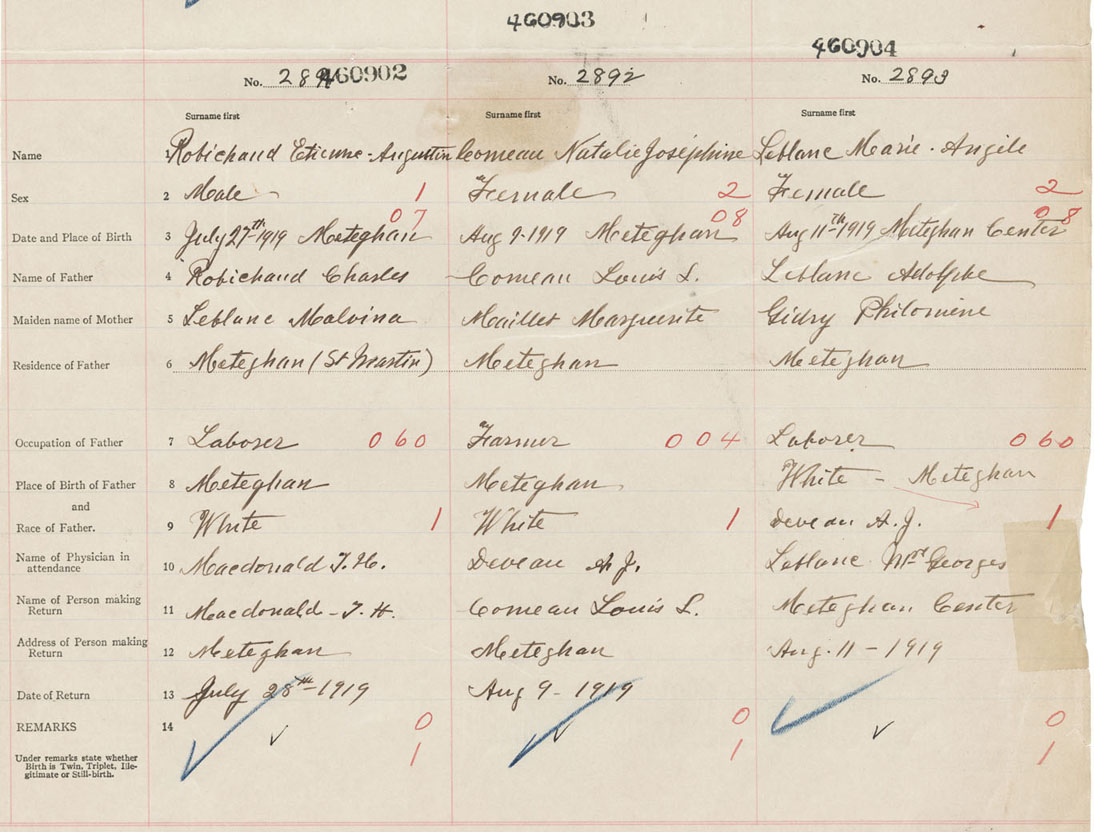 460903
460904
No. 289 460902 No. 2892 No. 2893
Surname first Surname first Surname first
Name 1 Robichaud Etienne-Augustin Comeau Natalie Josephine Leblanc Marie-Angile
Sex 2 Male 1 Female 2 Female 2
07 08 08
Date and Place of Birth 3 July 27th-1919 Meteghan Aug 9-1919 Meteghan Aug 11th-1919 Meteghan Center
Name of Father 4 Robichaud Charles Comeau Louis L. Leblanc Adolphe
Maiden name of Mother 5 Leblanc Malvina Maillet Marguerite Gidry Philomene
Residence of Father 6 Meteghan (St Martin) Meteghan Meteghan
Occupation of Father 7 Laborer 060 Farmer 004 Laborer 060
Place of Birth of Father 8 Meteghan Meteghan White - Meteghan
and
Race of Father. 9 White 1 White 1 Deveau A.J. 1
Name of Physician in
attendance 10 Macdonald T.H. Deveau A.J. Leblanc Mrs Georges
Name of Person making
Return 11 Macdonald - T.H. Comeau Louis L. Meteghan Center
Address of Person making
Return 12 Meteghan Meteghan Aug. 11-1919
Date of Return 13 July 28th-1919 Aug 9-1919
REMARKS 14 0 0 0
Under remarks state whether 1 1 1
Birth is Twin, Triplet, Ille-
gitimate or Still-birth.